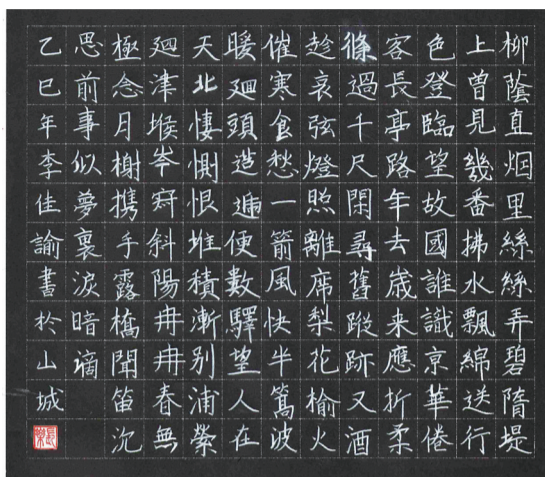 柳蔭直烟里絲絲弄碧隋堤
上曾見幾番拂水飄綿送行
色登臨望故國誰識京華倦
客長亭路年去歲来應折柔
條過千尺閑尋舊蹤跡又酒
趁哀弦燈照離席梨花榆火
催寒食愁一箭風快半篙波
暖廻頭造遞便數驛望人在
天北悽惻恨堆積漸別浦縈
廻津堠岑寂斜陽冉冉春無
極念月榭携手露橋聞笛沉
思前事似夢裏淚暗滴
乙巳年李佳諭書於山城